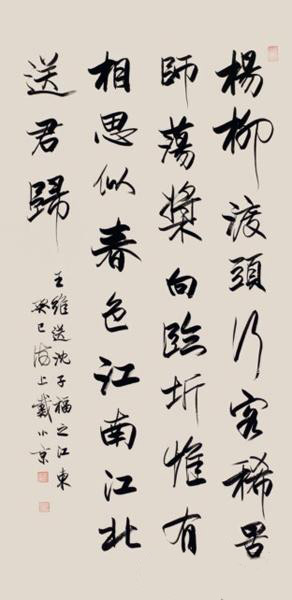 楊柳渡頭行客稀罟
師蕩槳向臨圻惟有
相思似春色江南江北
送君歸
王維送沈子福之江東
癸巳海上戴小京